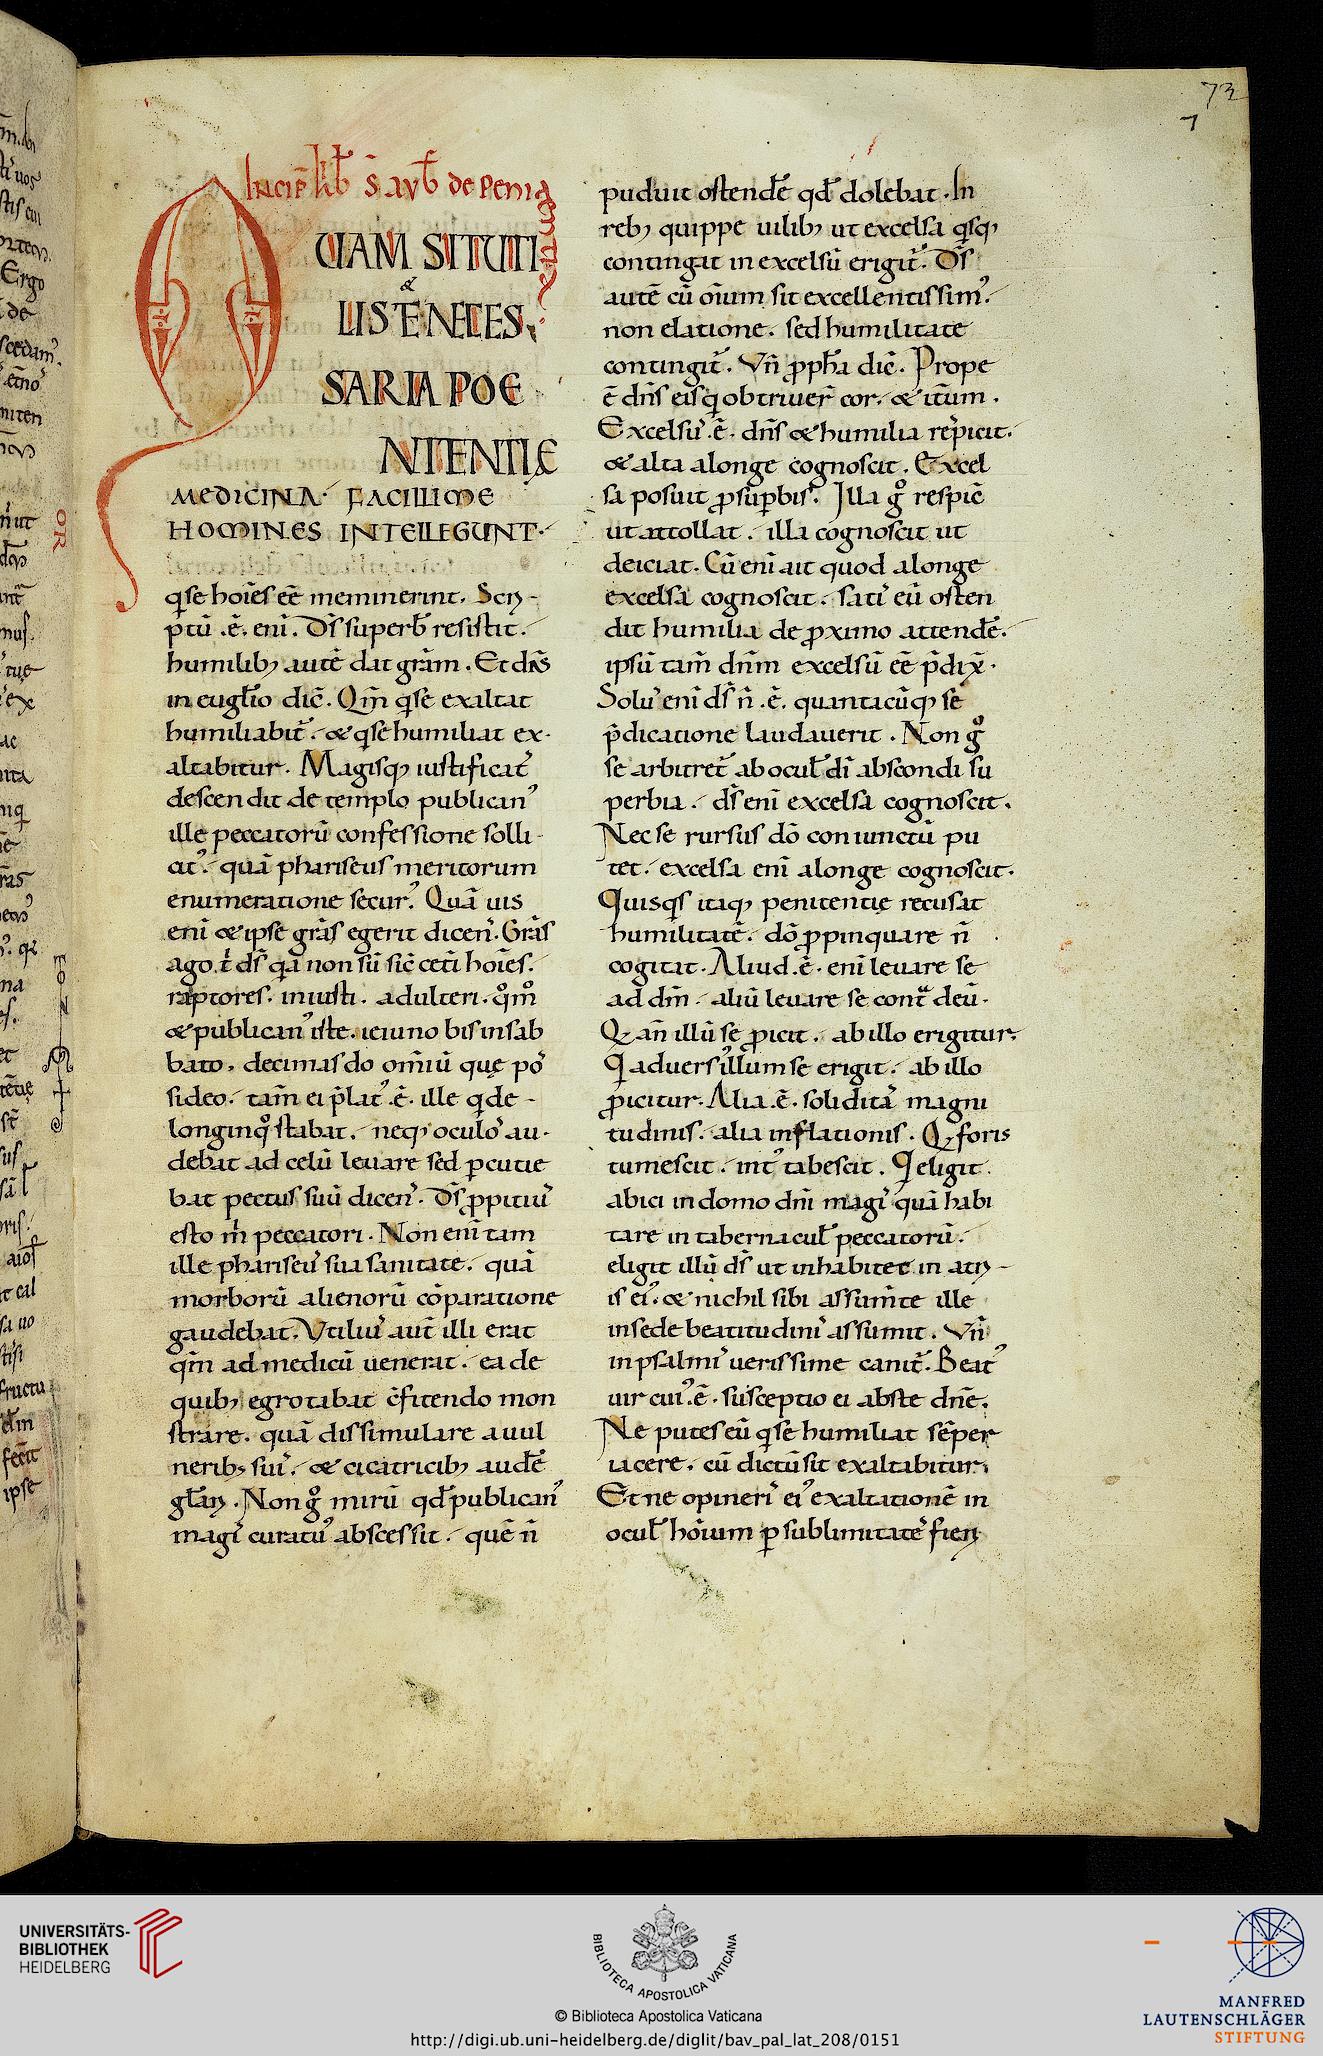 73
7
Incip̄ lib̄ s̄ auḡ de penia
tentia
QUAM SIT UTI
LIS & NECES
SARIA POE
NITENTIĘ
MEDICINA· FACILLIME
HOMINES INTELLEGUNT·
q̄ se hoīes eē meminerint. Scri-
ptū .ē. enī. Ds̄ superb̄ resistit.
humilib; autē dat grām. Et dn̄s
in eugl̄io dic̄. Qm̄ q̄ se exaltat
humiliabit̄. & q̄ se humiliat ex-
altabitur. Magisq; iustificat᾿
descendit de templo publican᾿
ille peccatorū confessione solli-
cit᾿. quā phariseus meritorum
enumeratione secur᾿. Quā uis
enī & ipse grās egerit dicen᾿. Grās
ago t̄ ds̄ q̄a non sū sic̄ cet̄i hoīes.
raptores. iniusti. adulteri. q̊m̊
& publican᾿ iste. ieiuno bis in sab
bato. decimas do om̄iū quę pos᾿
sideo. tam̄ ei p̄lat᾿ .ē. ille q̄ de-
longinq̊ stabat. neq; oculo᾿ au-
debat ad celū leuare sed pcutie
bat pectus suū dicen᾿. Ds̄ ppitiu᾿
esto m̄ peccatori. Non enī tam
ille phariseu᾿ sua sanitate. quā
morborū alienorū cōparatione
gaudebat. Utiliu᾿ aut̄ illi erat
qm̄ ad medicū uenerat. ea de
quib; egrotabat c̄fitendo mon
strare. quā dissimulare a uul
nerib; sui᾿. & cicatricib; audē
gl̄ari. Non g̊ mirū qd̄ publican᾿
magi᾿ curatu᾿ abscessit. quē n̄
puduit ostendē qd̄ dolebat. In
reb; quippe uilib; ut excelsa q̄sq;
contingat in excelsū erigit᾿. Ds̄
autē cū om̄ium sit excellentissim᾿.
non elatione. sed humilitate
contingit᾿. Vn̄ ppha dic̄. Prope
ē dn̄s eis q̄ obtriuer̄ cor. & itm̄.
Excelsu᾿ .ē. dn̄s & humilia respicit.
& alta a longe cognoscit. Excel
sa posuit p sup̄bis. Illa g̊ respic̄
ut attollat. illa cognoscit ut
deiciat. Cū enī ait quod a longe
excelsa cognoscit. sati᾿ eū osten
dit humilia de proximo attendē.
ipsū tam̄ dnm̄ excelsū eē p̄dix̄.
Solu᾿ enī ds̄ n̄ .ē. quantacūq; se
p̄dicatione laudauerit. Non g̊
se arbitret᾿ ab ocul̄ dī abscondi su
perbia. ds̄ enī excelsa cognoscit.
Nec se rursus dō coniunctū pu
tet. excelsa enī a longe cognoscit.
Quisq̄s itaq; penitentię recusat
humilitatē. dō ppinquare n̄
cogitat. Aliud .ē. enī leuare se
ad dm̄. aliū leuare se contᵃ deū.
Q; an̄ illū se p̄icit. ab illo erigitur.
Q̄ aduers᾿ illum se erigit. ab illo
p̄icitur. Alia .ē. soliditas᾿ magni
tudinis. alia inflationis. Q̄ foris
tumescit. int᾿ tabescit. Q̄ eligit
abici in domo dn̄i magi᾿ quā habi
tare in tabernacul̄ peccatorū.
eligit illū ds̄ ut inhabitet in atri-
is ei᾿. & nichil sibi assum̄te ille
in sede beatitudini᾿ assumit. Vn̄
in psalmi᾿ uerissime canit̄. Beat᾿
uir cui᾿ .ē. susceptio ei abs te dn̄e.
Ne putes eū q̄ se humiliat sēper
iacere. cū dictū sit exaltabitur.
Et ne opineri᾿ ei᾿ exaltationē in
ocul̄ hōium p sublimitate᾿ fieri
UNIVERSITÄTS-
BIBLIOTHEK
HEIDELBERG
BIBLIOTHECA APOSTOLICA VATICANA
© Biblioteca Apostolica Vaticana
http://digi.ub.uni-heidelberg.de/diglit/bav_pal_lat_208/0151
MANFRED
LAUTENSCHLÄGER
STIFTUNG